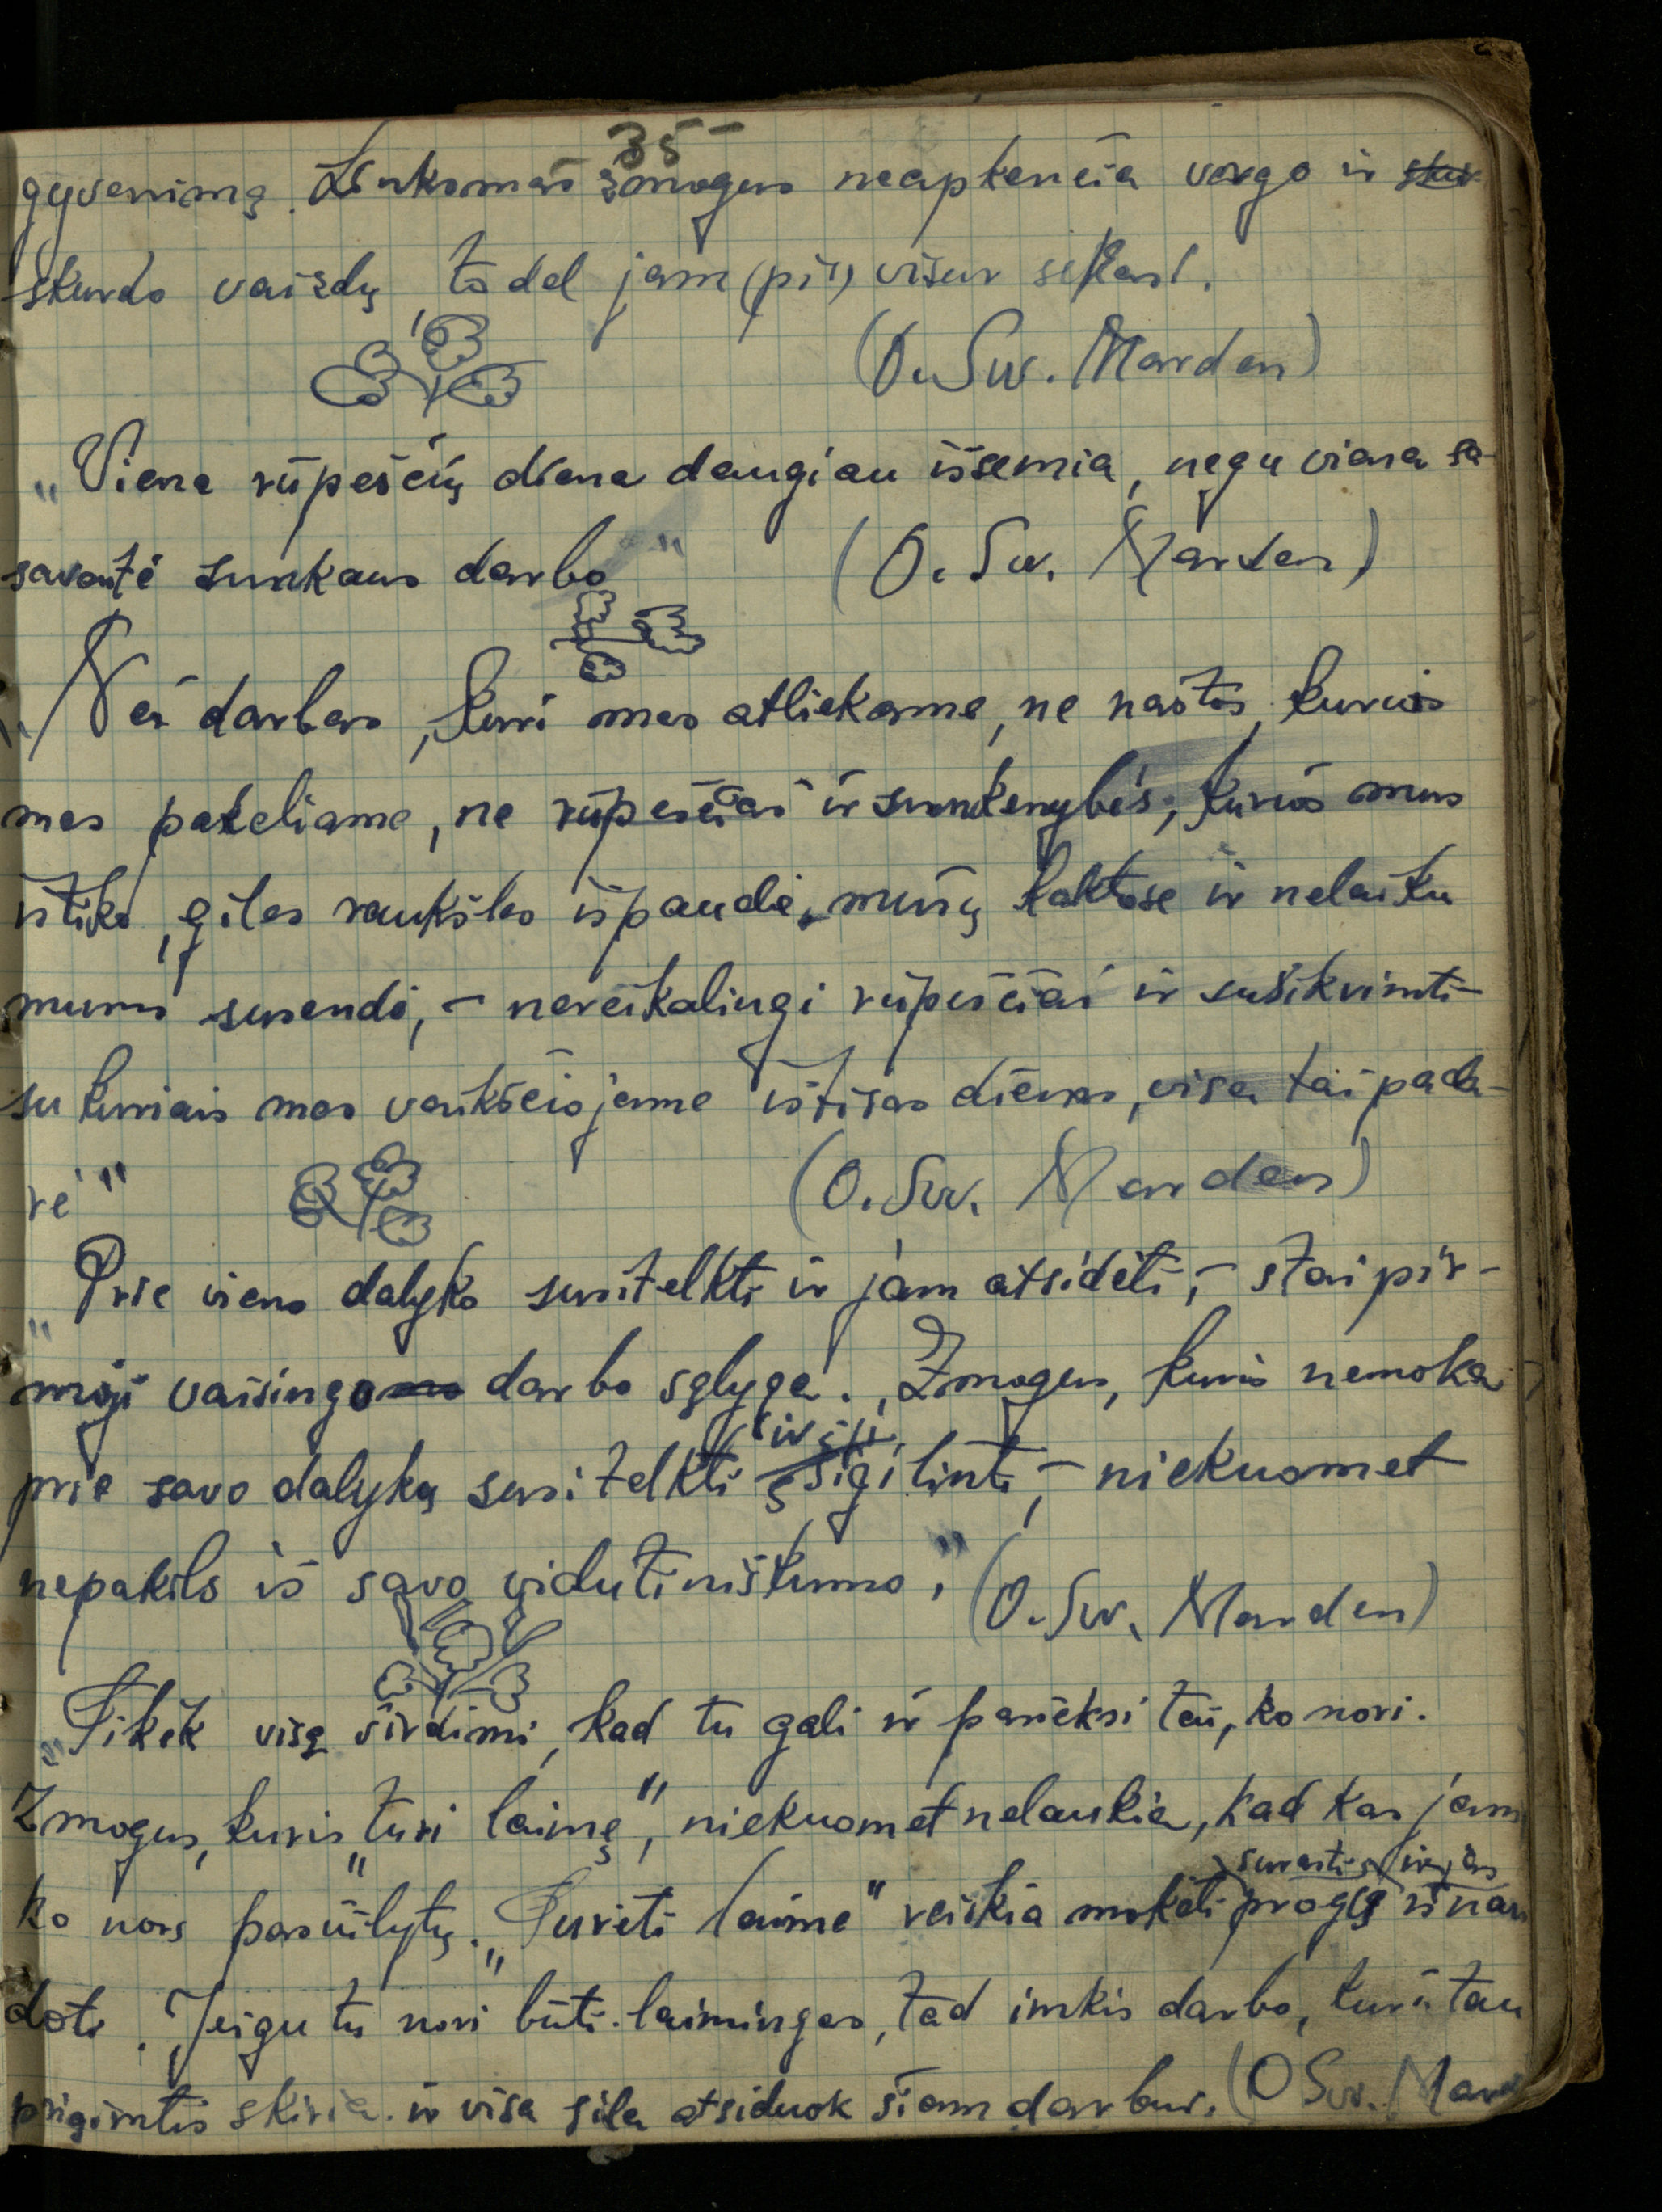 35
gyvenimą. Linksmas žmogus neapkenčia vargo ir skur
skurdo vaizdų, todėl jam (pil) visur sekasi.
(O. Sw. Marden)
„Viena rūpesčių diena daugiau išsemia, negu viena sa-
savaitė sunkaus darbo" (O. Sw. Marden)
„Nei darbas, kurį mes atliekame, ne naštos, kurias
mes pakeliame, ne rūpesčiai ir sunkenybės, kurios mus
ištiko, gilas raukšles išspaudė mūsų kaktose ir nelaiku
mumis susendė, – nereikalingi rūpesčiai ir susikrimti-
su kuriais mes vaikščiojame ištisas dienas, visa tai pada-
rė" (O. Sw. Marden)
„Prie vieno dalyko susitelkti ir jam atsidėti, – štai pir-
moji vaisingo darbo sąlyga. „Žmogus, kuris nemoka
ir į jį
prie savo dalykų susitelkti įsigilinti, – niekuomet
nepakils iš savo vidutiniškumo." (O. Sw. Marden)
„Tikėk visą širdimi, kad tu gali ir pasieksi tai, ko nori.
Žmogus, kuris „turi laimę", niekuomet nelaukia, kad kas jam
surasti ir jas
ko nors pasiūlytų. „Turėti laimę" reiškia mokėti progą išnau
doti. „Jeigu tu nori būti laimingas, tad imkis darbo, kurį tau
prigimtis skiria ir visa siela atsiduok šiam darbui. (O Sw. Mar